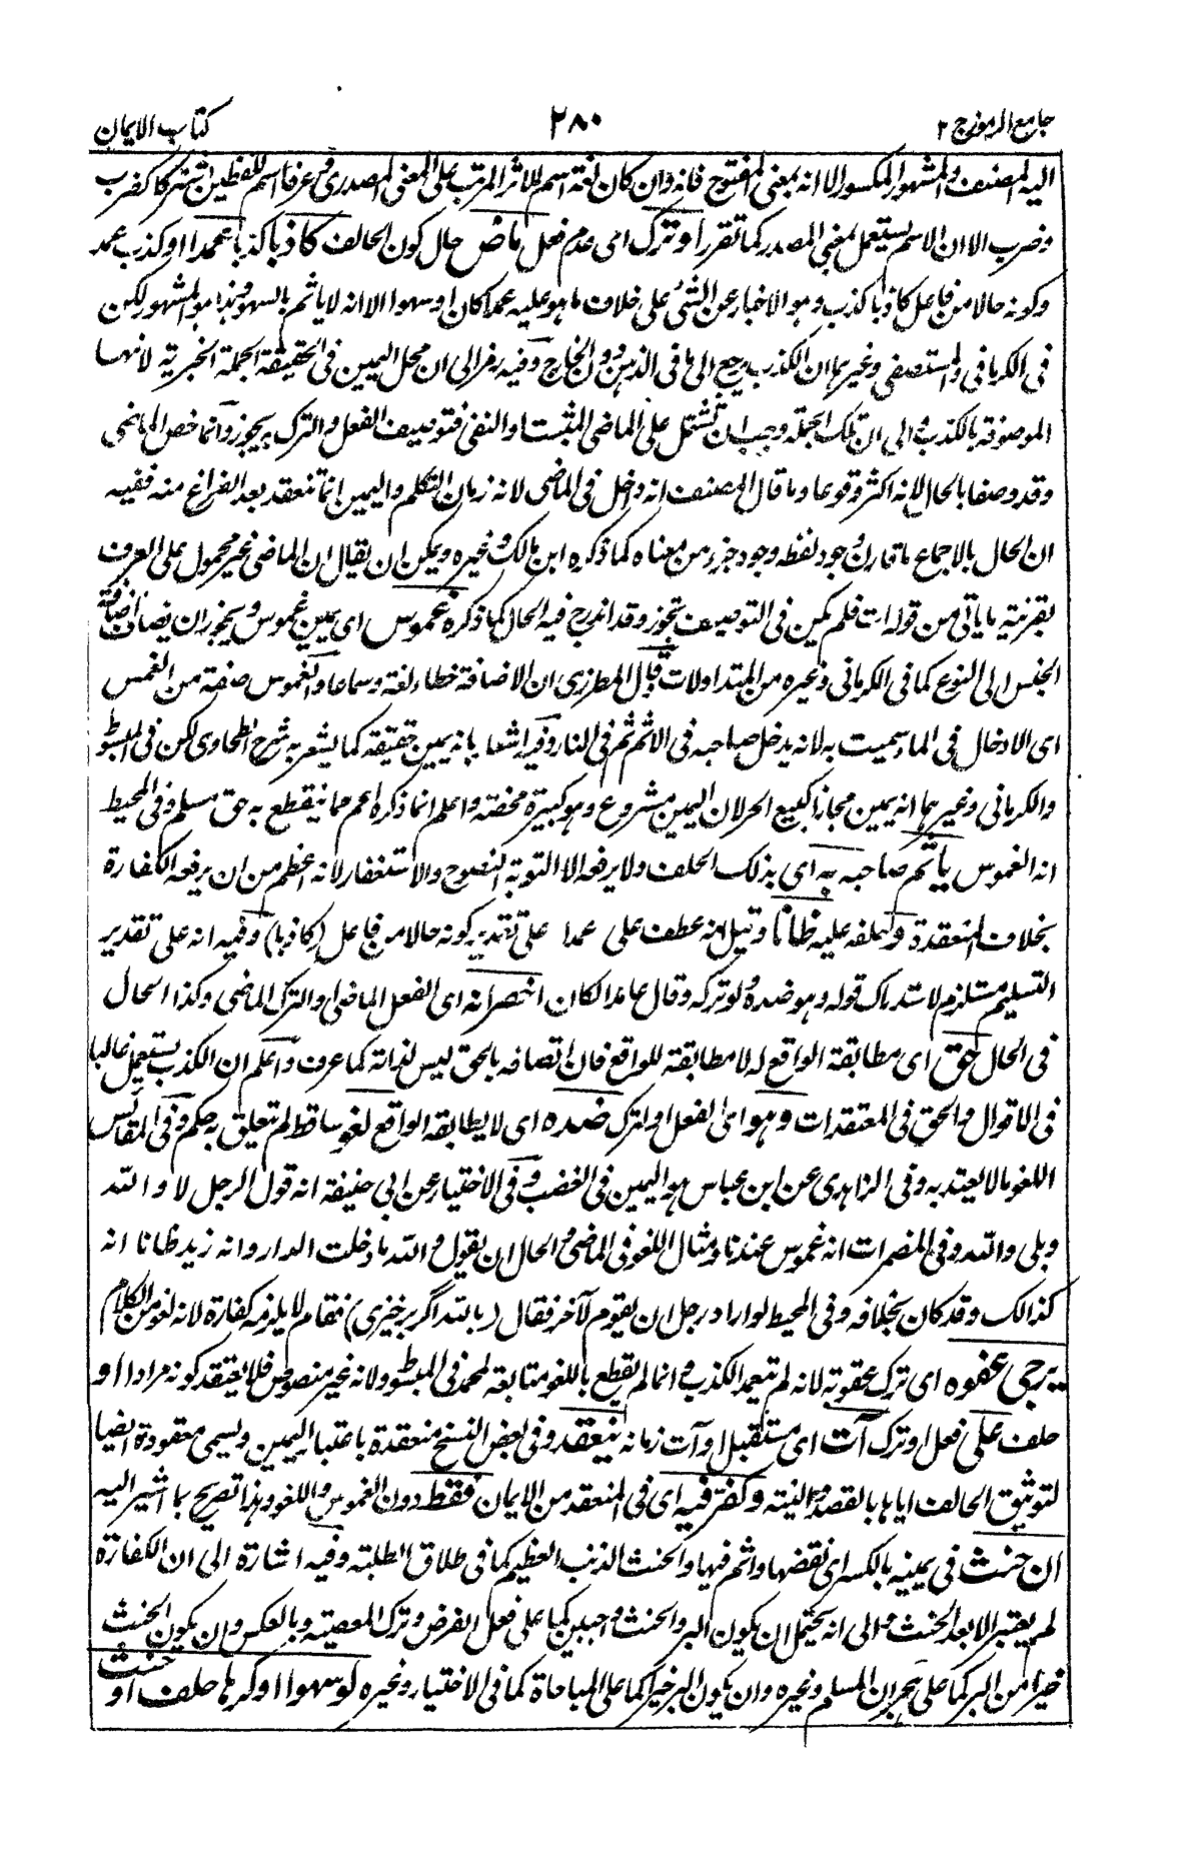 جامع الرموز ج ٢
٢٨٠
كتاب الايمان
اليه المصنف والمشهور المكسور الا انه بمعنى المفتوح فانه وان كان لغة اسم للاثر المرتب على المعنى المصدرى وعرفا اسم للفظين اشتركا كضرب
وضرب الا ان الاسم يستعمل بمعنى المصدر كما تقرر او ترك اى عدم فعل ماض حال كون الحالف كاذبا كذبا عمدا او كذب عمد
وكونه حالا من فاعل كاذبا كذب وهو الاخبار عن الشئ على خلاف ما هو عليه عمدا كان او سهوا الا انه لا ياثم بالسهو وهذا هو المشهور لكن
فى الكرمانى والمستصفى وغيرهما ان الكذب يرجع الى ما فى الذهن دون الخارج وفيه رمز الى ان محل اليمين فى الحقيقة الجملة الخبرية لانها
الموصوفة بالكذب والى ان تلك الجملة وجب ان تشتمل على الماضى المثبت او النفى فتوصيف الفعل والترك به تجوز وانما خص الماضى
وقد وصفا بالحال لانه اكثر وقوعا وما قال المصنف انه داخل فى الماضى لانه زمان التكلم واليمين انما تنعقد بعد الفراغ منه ففيه
ان الحال بالاجماع ما قارن وجود لفظه وجود جزء من معناه كما ذكره ابن مالك وغيره ويمكن ان يقال ان الماضى غير محمول على العرف
بقرينة ما ياتى من قوله ات فلم يكن فى التوصيف تجوز وقد اندرج فيه الحال كما ذكره غموس اى يمين غموس ويجوز ان يضاف اضافة
الجنس الى النوع كما فى الكرمانى وغيره من المتداولات وقال المطرزى ان الاضافة خطاء لغة وسماعا والغموس صفة من الغمس
اى الادخال فى الماء سميت به لانه يدخل صاحبه فى الاثم ثم فى النار وفيه اشعار بانه يمين حقيقة كما يشعر به شرح الطحاوى لكن فى المبسوط
والكرمانى وغيرهما انه يمين مجازا كبيع الحر لان اليمين مشروع وهو كبيرة محضة واعلم انما ذكره اعم مما ينقطع به حق مسلم وفى المحيط
انه الغموس ياثم صاحبه به اى بذلك الحلف ولا يرفعه الا التوبة النصوح والاستغفار لانه اعظم من ان يرفعه الكفارة
بخلاف المنعقدة والحلف عليه ظانا وقيل انه عطف على عمدا على تقدير كونه حالا من فاعل (كاذبا) وفيه انه على تقدير
التسليم مستلزم لاستدراك قوله وهو ضده ولو تركه وقال عامدا لكان اخصر انه اى الفعل الماضى او الترك الماضى وكذا الحال
فى الحال حق اى مطابقة الواقع له لا مطابقته للواقع فان اتصافه بالحق ليس لذاته كما عرف واعلم ان الكذب يستعمل غالبا
فى الاقوال والحق فى المعتقدات وهو اى الفعل او الترك ضده اى لا يطابقه الواقع لغو ساقط لم تعلق به حكم وفى المقائس
اللغو ما لا يعتد به وفى الزاهدى عن ابن عباس هو اليمين فى الغضب وفى الاختيار عن ابى حنيفة انه قول الرجل لا والله
وبلى والله وفى المضمرات انه غموس عندنا ومثال اللغو فى الماضى والحال ان يقول والله ما دخلت الدار وانه زيد ظانا انه
كذالك وقد كان بخلافه وفى المحيط لو اراد رجل ان يقوم لآخر فقال (بالله اگر برخيزى) فقام لا يلزمه كفارة لانه لغو من الكلام
يرجى عفوه اى ترك عقوبته لانه لم يتعمد الكذب وانما لم يقطع باللغو متابعة لمحمد فى المبسوط ولانه غير منصوص فلا يعتقد كونه مرادا او
حلف على فعل او ترك آت اى مستقبل او آت زمانه ينعقد وفى بعض النسخ منعقدة باعتبار اليمين ويسمى معقودة ايضا
لتوثيق الحالف اياها بالقصد والنية وكفر فيه اى فى المنعقد من الايمان فقط دون الغموس واللغو وهذا تصريح بما اشير اليه
ان حنث فى يمينه بالكسر اى نقضها واثم فيها والحنث الذنب العظيم كما فى طلاق الطلبة وفيه اشارة الى ان الكفارة
لم يعتبر الا بعد الحنث والى انه يحتمل ان يكون البر والحنث واجبين كما على فعل الفرض وترك المعصية وبالعكس وان يكون الحنث
خيرا من البر كما على هجران المسلم وغيره وان يكون البر خيرا كما على المباحاة كما فى الاختيار وغيره لو سهوا او كرها حلف او حنث